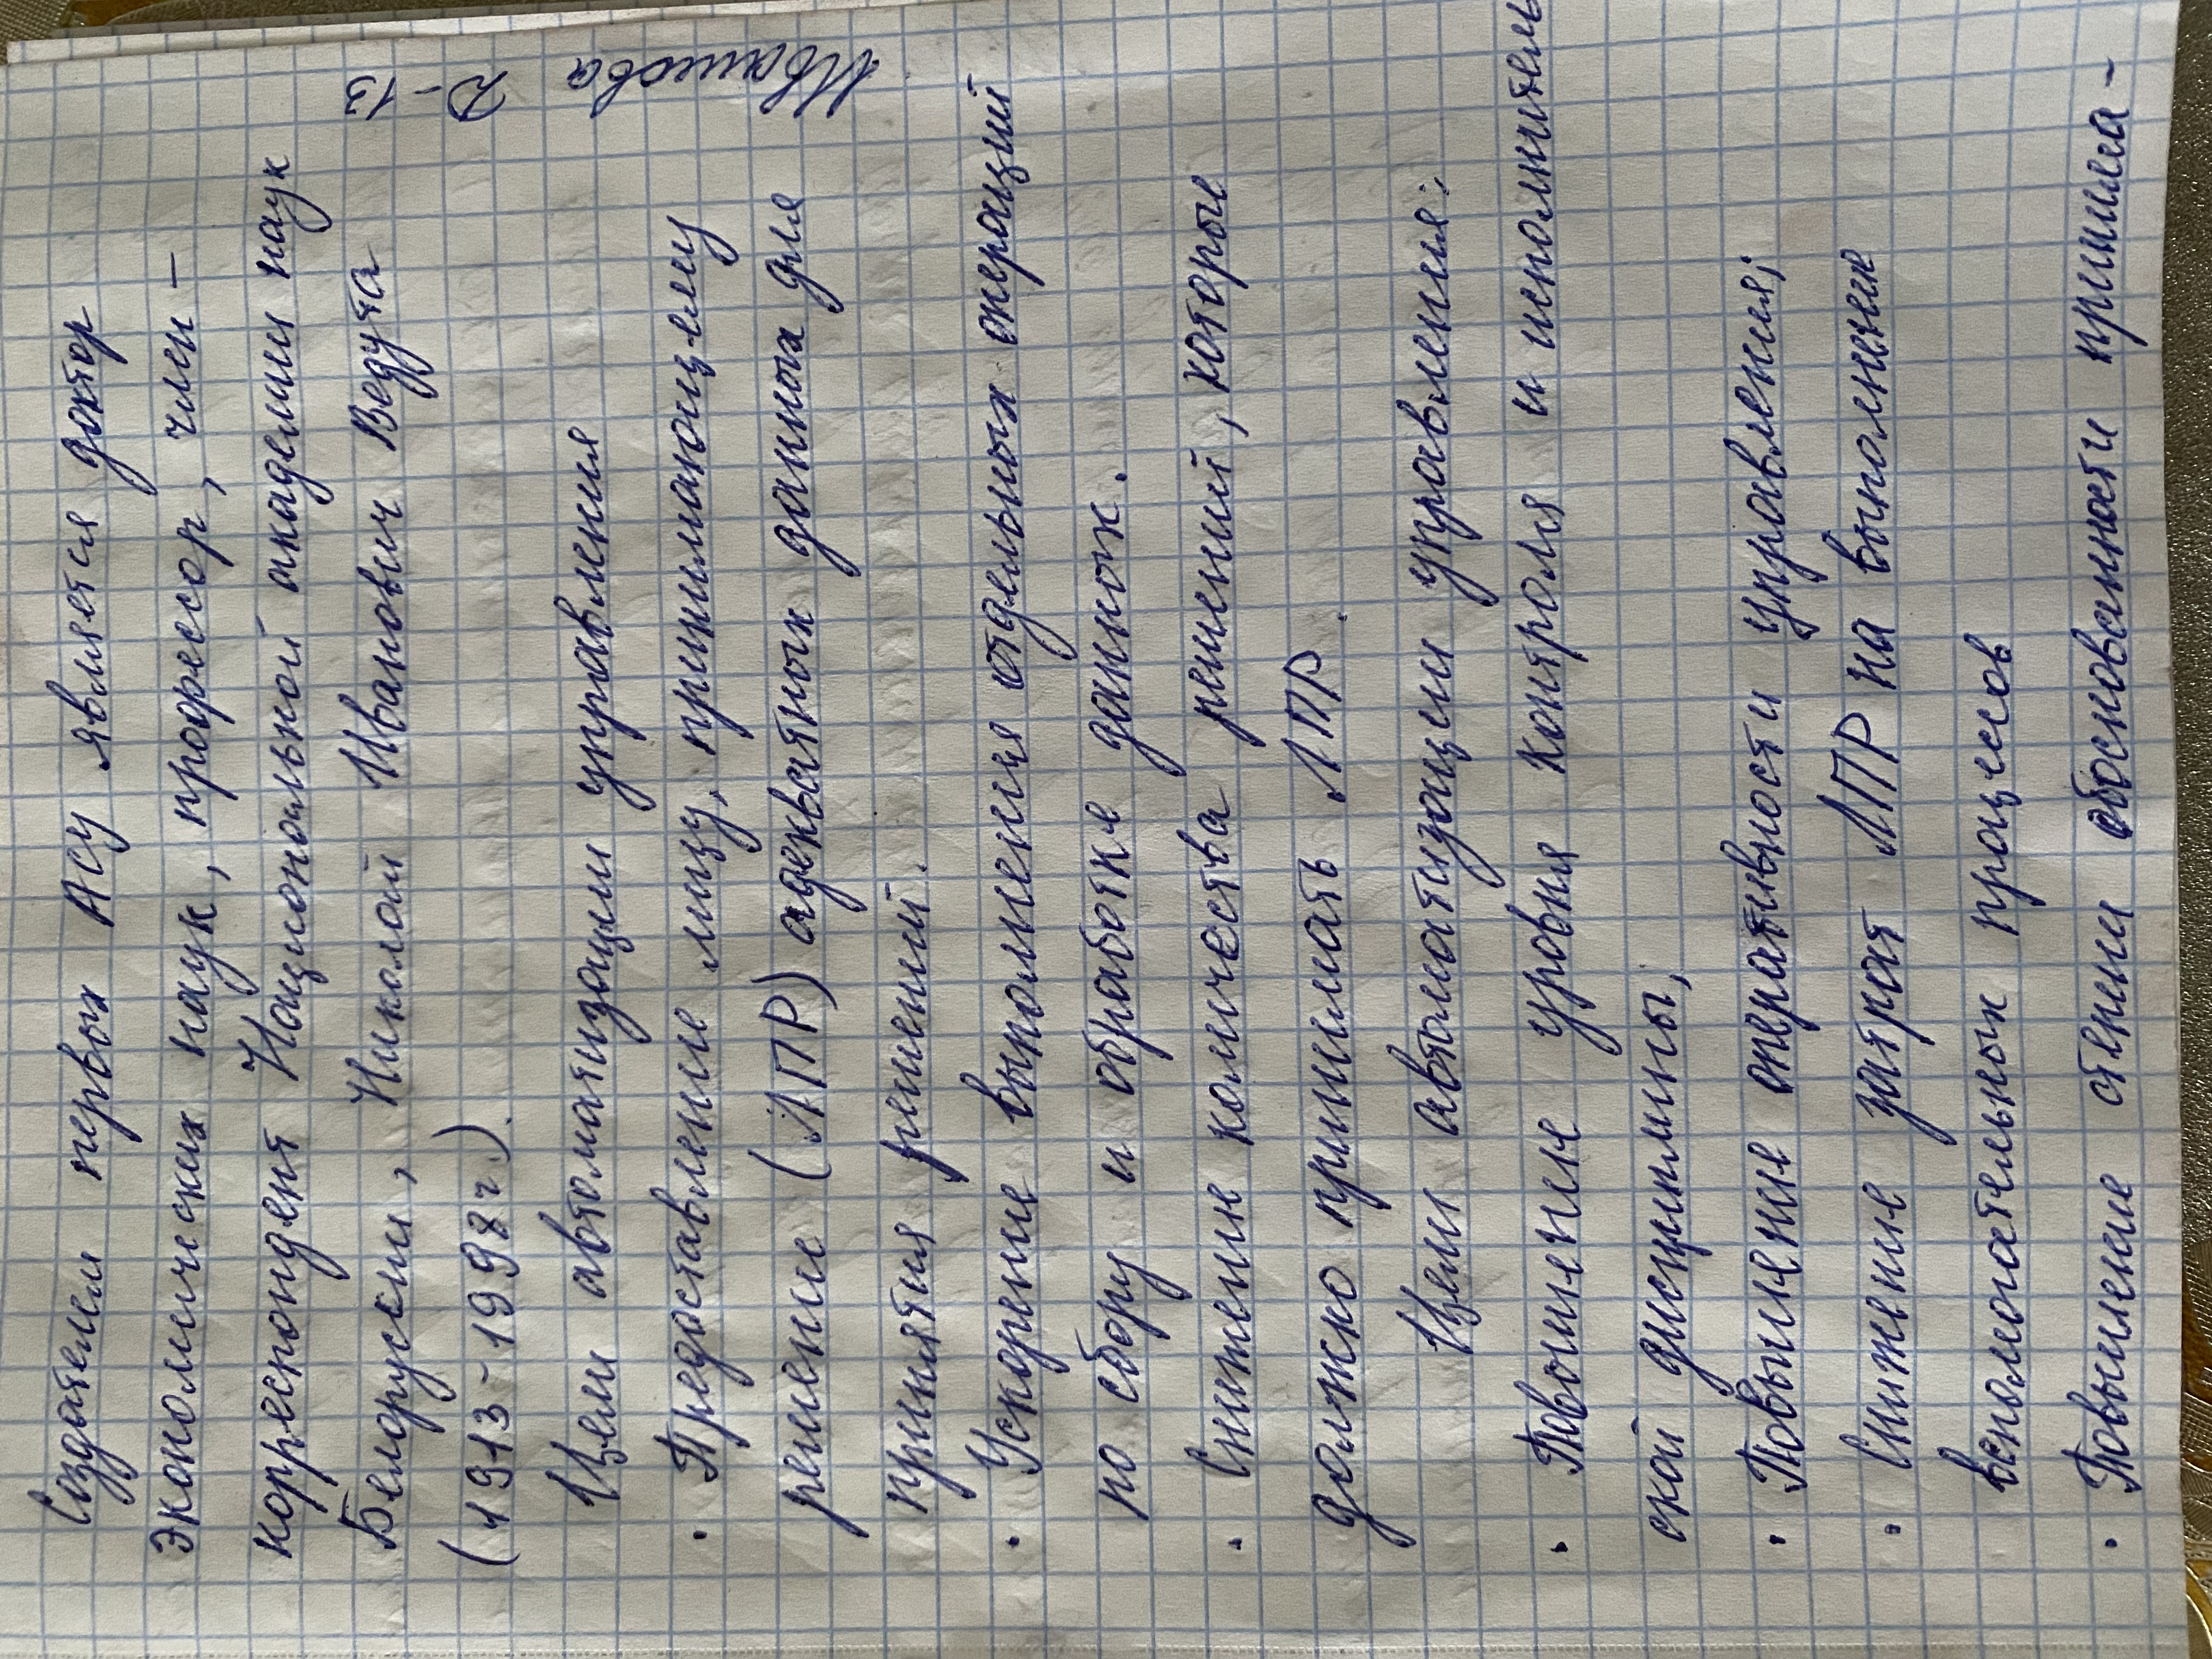 Создателем первых АСУ является доктор
экономических наук, профессор, член-
корреспондент Национальной академии наук
Белоруссии, Николой Иванович Ведута
(1913-1998г.).
Цели автоматизации управления
• Предоставление лицу, принимающему
решение (ЛПР) адекватных данных для
принятия решений.
• Ускорение выполнения отдельных операций
по сбору и обработке данных.
• Снижение количества решений, которые
должно принимать ЛПР.
Цели автоматизации управления:
• Повышение уровня контроля и исполнитель
ской дисциплины,
• Повышение оперативности управления;
• Снижение затрат ЛПР на выполнение
вспомогательных процессов
• Повышение степени обоснованности принима-
Ивашова
Д-13